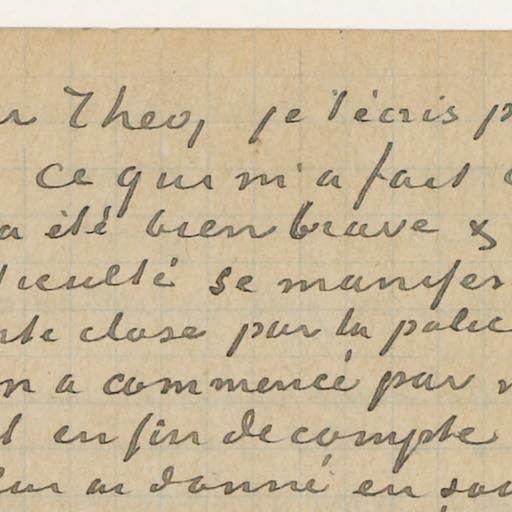 Theo, je t'écris
ce qui m'a fait
a été bien brave &
se manifes
close par la polic
a commencé par
en fin de compte
ai donné en sou